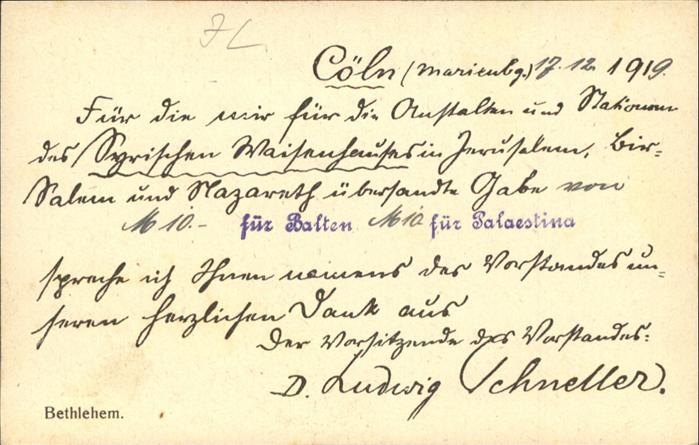 Cöln (Marienbg.) 17.12. 1919.
Für die mir für die Anstalten und Stationen
des Syrischen Waisenhauses in Jerusalem, Bir-
Salem und Nazareth übersandte Gabe von
M 10.- für Balten M 10 für Palaestina
spreche ich Ihnen namens des Vorstandes un-
seren herzlichen Dank aus
Der Vorsitzende des Vorstandes:
D. Ludwig Schneller.
Bethlehem.